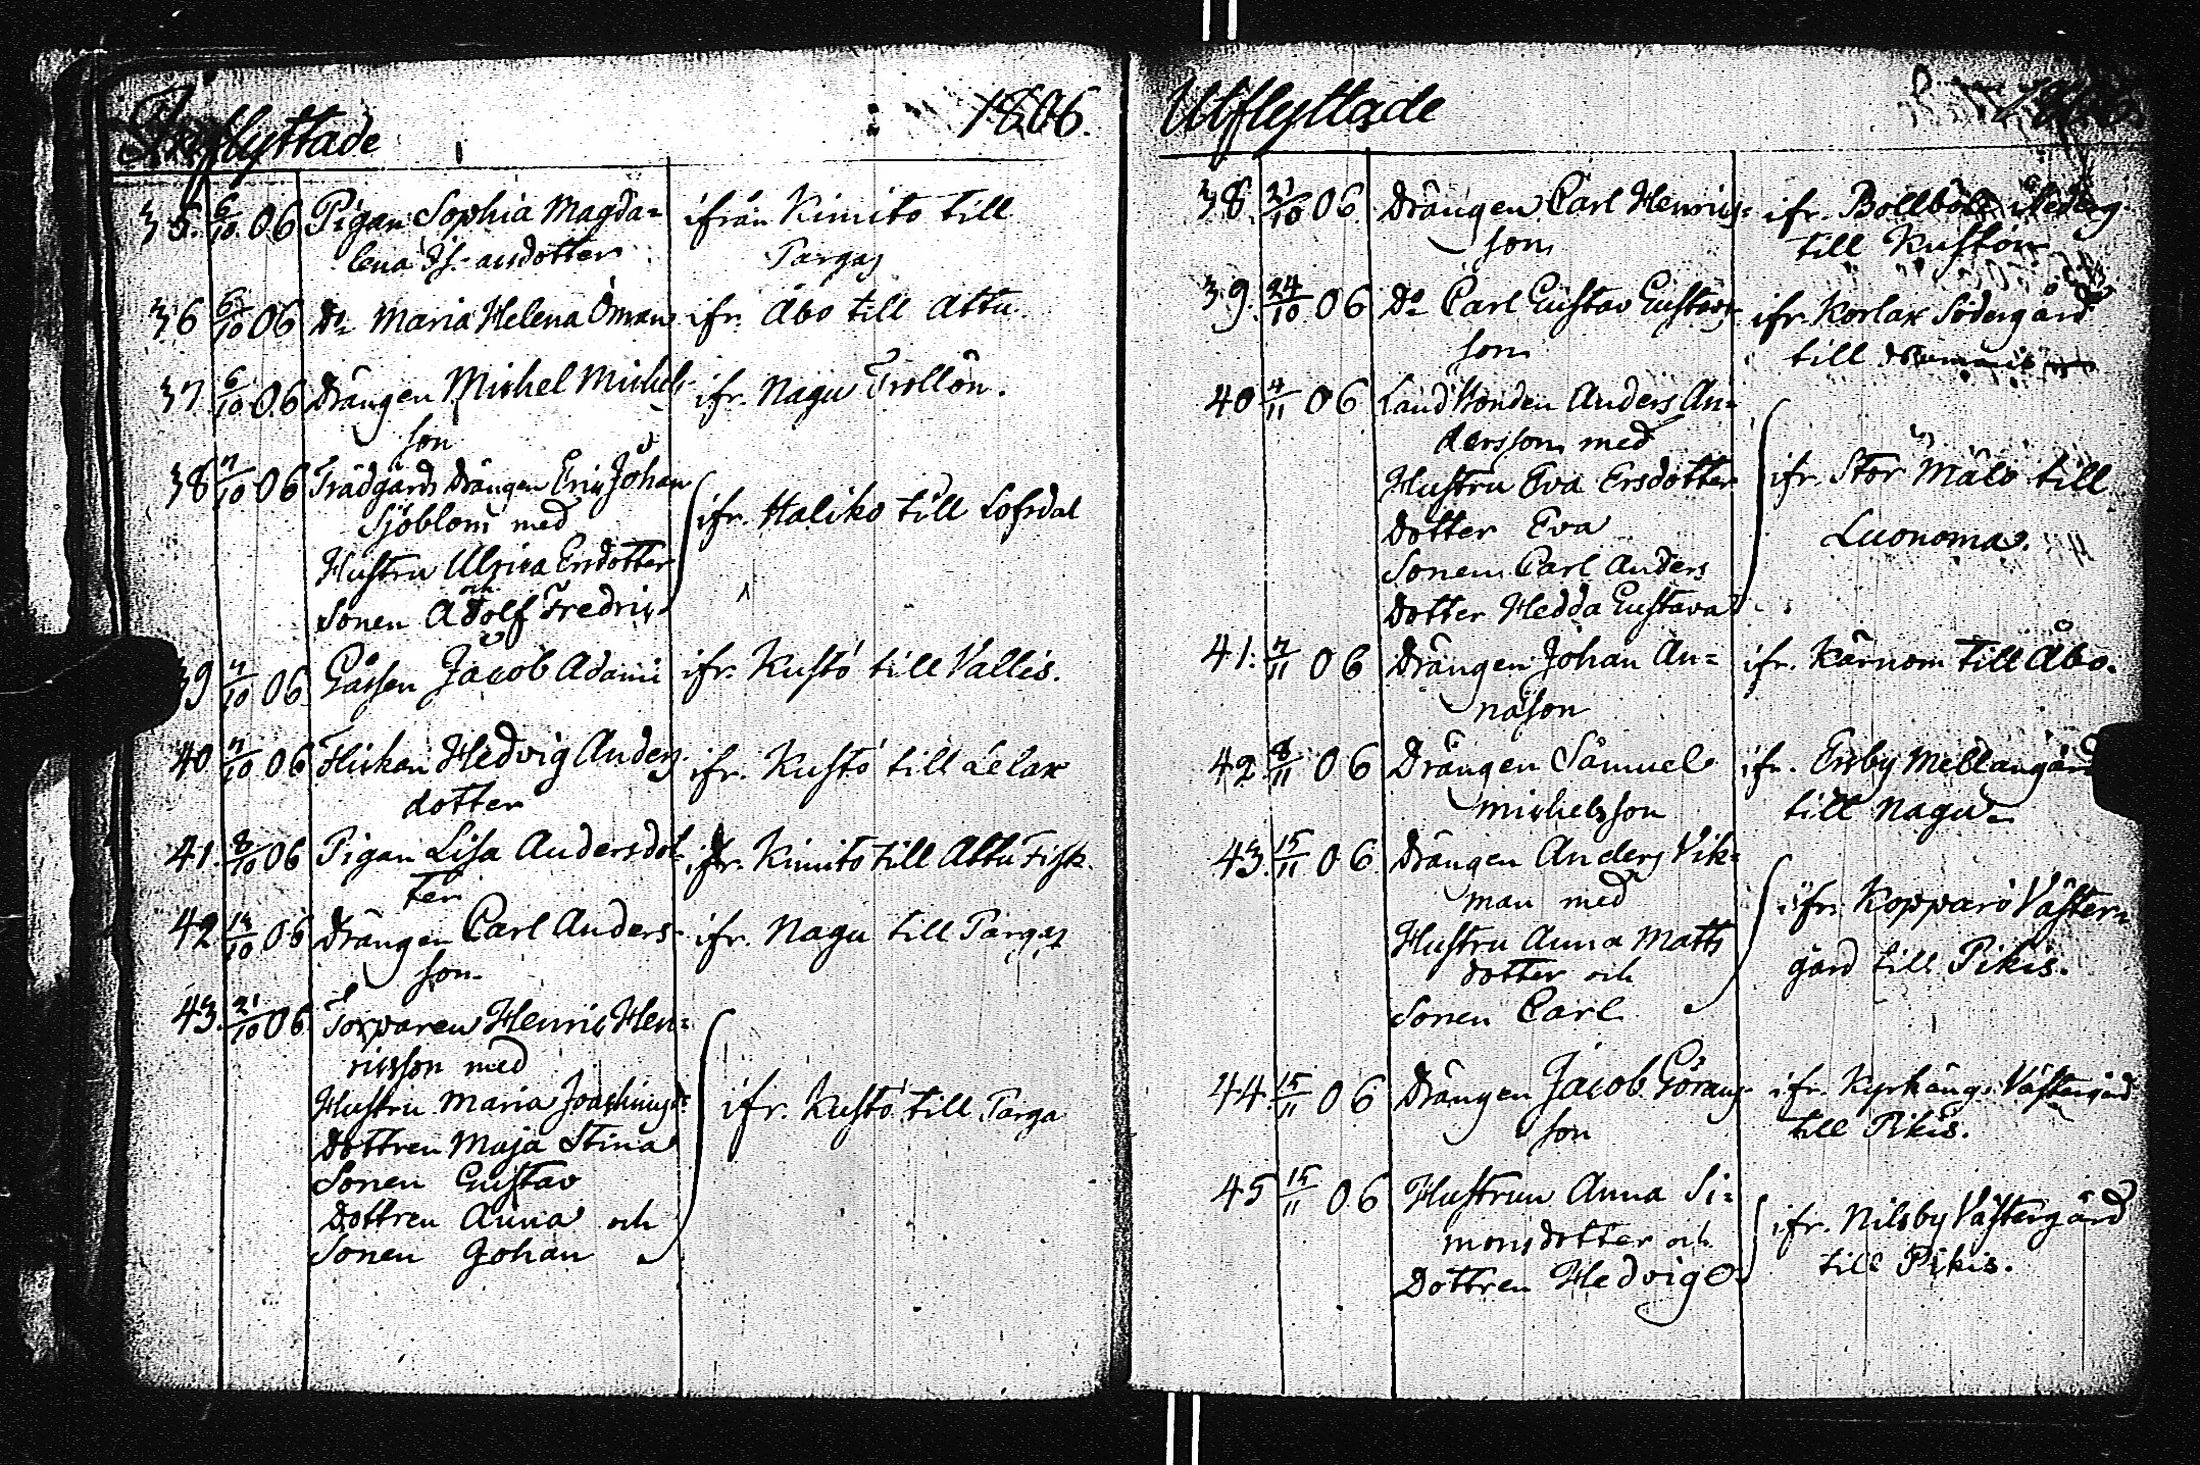 Inflyttade 1806.
35. 6/10 06 Pigan Sophia Magda= ifrån Kimito till
lena Is. acsdotter Pargas
36 6/10 06 Do Maria Helena Öman ifr. Åbo till Attu.
37. 6/10 06 Drängen Michel Michels- ifr. Nagu Trollön.
son
38 7/10 06 Trädgårds drängen Eric Johan
Sjöblom med ifr. Haliko till Lofsdal
Hustru Ulrica Ersdotter
och
Sonen Adolf Fredric
39 7/10 06 Gåssen Jacob Adami ifr. Kustö till Vallis.
40 7/10 06 Flickan Hedvig Anders ifr. Kustö till Lelax
dotter
41. 8/10 06 Pigan Lisa Andersdot= ifr. Kimito till Attu Fisk.
ter
42 14/10 06 Drängen Carl Anders- ifr. Nagu till Pargas
son
43. 21/10 06. Torparen Henric Hen=
ricsson med
Hustru Maria Joachimsd: ifr. Kustö till Parga
Dottren Maja Stina
Sonen Gustav
Dottren Anna och
Sonen Johan
Utflyttade
38. 21/10 06 Drängen Carl Henrics= ifr. Bollböle
son till Kustön
39. 24/10 06 Do Carl Gustav Gustavs ifr. Korlax Södergård
son till
40 4/11 06 Landbonden Anders An=
dersson med
Hustru Eva Ersdotter ifr. Stor Mälö till
Dotter Eva Luonoma.
Sonen Carl Anders
Dotter Hedda Gustava
41. 7/11 06 Drängen Johan An= ifr. Kärnom till Åbo.
nason
42. 8/11 06 Drängen Samuel ifr. Ersby Mellangård
Michelsson till Nagu
43. 15/11 06. Drängen Anders Vik=
man med ifr. Kopparö Väster=
Hustru Anna Matts gård till Pikis.
dotter och
Sonen Carl
44. 15/11 06 Drängen Jacob Görans- ifr. Kyrkängs Västergård
son till Pikis.
45 15/11 06 Hustrun Anna Si=
monsdotter och ifr. Nilsby Västergård
Dottren Hedvig till Pikis.